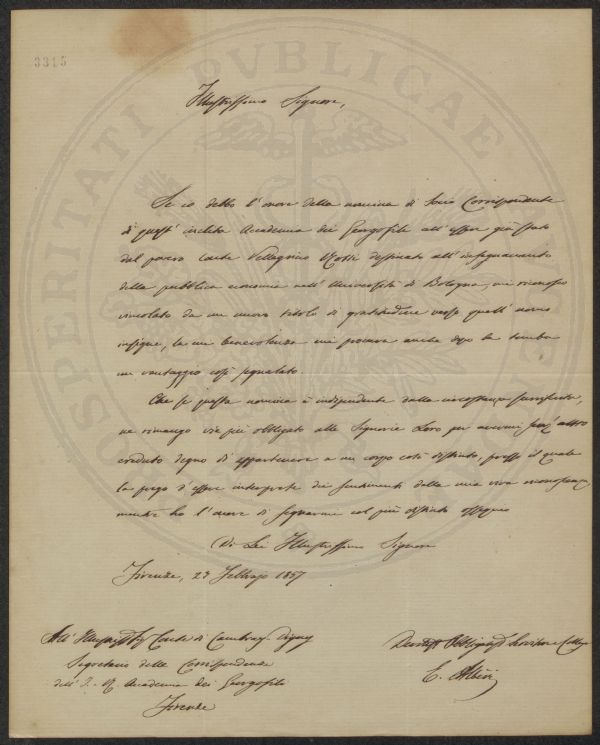 3315
PROSPERITATI PVBLICAE
Illustrissimo Signore,
Se io debbo l'onore della nomina di Socio Corrispondente
di quest' inclita Accademia dei Georgofili all' esser già stato
dal povero Conte Pellegrino Rossi destinato all' insegnamento
della pubblica economia nell' Università di Bologna, mi riconosco
vincolato da un nuovo titolo di gratitudine verso quell' uomo
insigne, la cui benevolenza mi procura anche dopo la tomba
un vantaggio così segnalato.
Che se questa nomina è indipendente dalla circostanza
ne rimango vie più obbligato alle Signorie Loro per avermi senz' altro
creduto degno di appartenere a un corpo così distinto, presso il quale
la prego d' essere interprete dei sentimenti della mia viva riconoscenza
mentre ho l' onore di segnarmi col più distinto ossequio
Di Lei Illustrissimo Signore
Firenze, 23 Febbrajo 1857
All' Conte di Cambray-Digny
Segretario delle Corrispondenze
dell' I. e R. Accademia dei Georgofili
Firenze
Servitore e Collega
E. Albèri